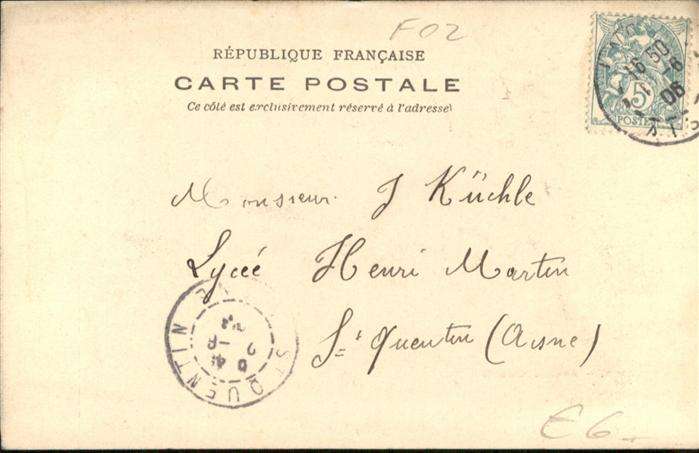 F02
RÉPUBLIQUE FRANÇAISE
CARTE POSTALE
Ce côté est exclusivement réservé à l'adresse
16 50
06
5
POSTE
Monsieur J Küchle
Lycée Henri Martin
St Quentin (Aisne)
ST QUENTIN
E6